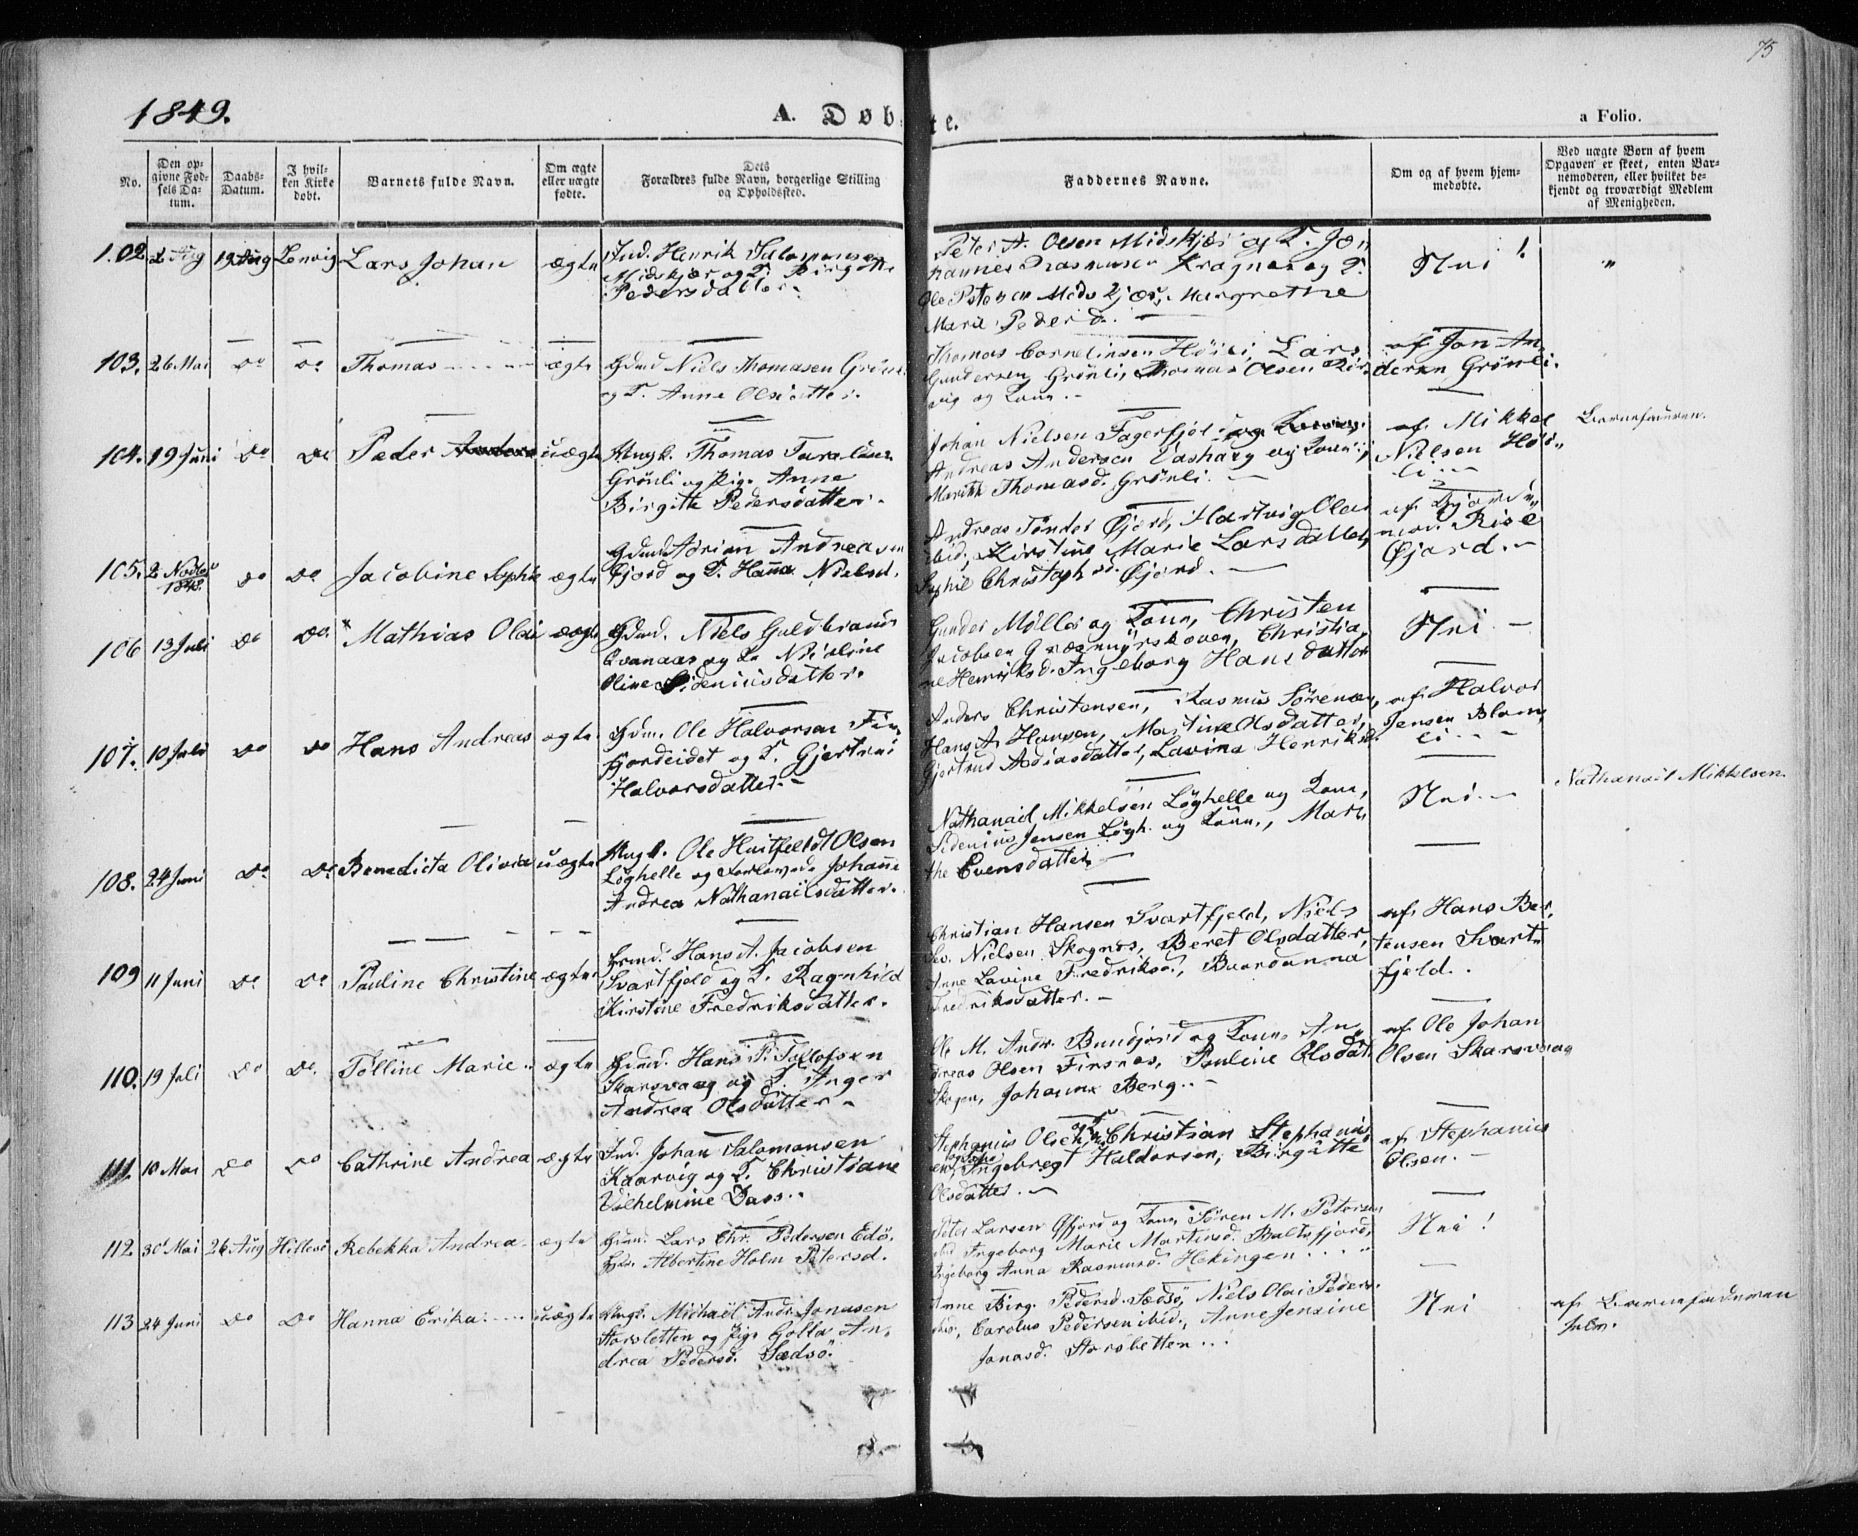 75
1849.
A. Døbte.
a Folio.
No.
Den op-
givne Fød-
sels Da-
tum.
Daabs-
Datum.
I hvil-
ken Kirke
døbt.
Barnets fulde Navn.
Om ægte
eller uægte
fødte.
Dets
Forældres fulde Navn, borgerlige Stilling
og Opholdssted.
Faddernes Navne.
Om og af hvem hjem-
medøbte.
Ved uægte Børn af hvem
Opgaven er skeet, enten Bar-
nemoderen, eller hvilket be-
kjendt og troværdigt Medlem
af Menigheden.
102. Aug 19 Aug Lenvig Lars Johan ægte Ind. Henrik Salomonsen
Midskjær og K. Birgitte
Pedersdatter.
Peter A. Olsen Midskjær og K. Jo-
hannes Rasmusen Kragnæs og K.
Ole Petersen Midskjær, Margrethe
Marie Pedersd.
Nei! "
103. 26 Mai Do Do Thomas ægte Gdmd Niels Thomasen Grønli
og K. Anne Olsdatter.
Thomas Cornelinsen Høili, Lars
Gundersen Grønli, Thomas Olsen Rør-
vig og Kone.
af Jon An-
dersen Grønli.
104. 19 Juni Do Do Peder uægte Ungk. Thomas
Grønli og Pige Anne
Birgitte Pedersdatter.
Johan Nielsen Fagerfjeld og
Andreas Andersen Vashaug og Kone,
Marith Thomasd. Grønli.
af Mikkel
Nielsen Høi-
li.
Barnefaderen.
105. 2 Novbr 1848 Do Do Jacobine Sophie ægte Gdmd Adrian Andreasen
Øjord og K. Hanna Nielsd.
Andreas Tønder Øjord, Hartvig Olai
ibid, Kirstine Marie Larsdatter,
Sophie Christophsd. Øjord.
af Gjorde-
mor. Rise
Øjord.
106 13 Juli Do Do. Mathias Olai uægte Gdmd. Niels Guldbrands
Evanaas og K. Nicoline
Oline Sideniusdatter.
Gunder Møller og Kone, Christen
Jacobsen Græsmyrskoven, Christia-
ne Henriksd. Ingeborg Hansdatter
Nei
107. 10 Juli Do Do Hans Andreas ægte Gdm. Ole Halvorsen Fin-
fjordeidet og K. Gjertrud
Halvorsdatter.
Anders Christensen, Rasmus Sørensen,
Hans A. Hansen, Martine Olsdatter,
Gjertrud Adiasdatter, Lavina Henriksd.
af Halvor
Jensen Blom-
li
108. 24 Juni Do Do Benedicta Olivia uægte Ungk. Ole Huitfeldt Olsen
Løghelle og Forlovede Johanne
Andrea Nathanaelsdatter.
Nathanael Mikkelsen Løghelle og Kone,
Sidenius Jensen Løgh. og Kone, Mar-
the Evensdatter
Nei
Nathanael Mikkelsen.
109 11 Juni Do Do Pauline Christine ægte Grmd. Hans A. Jacobsen
Svartfjeld og K. Ragnhild
Kirstine Fredriksdatter.
Christian Hansen Svartfjeld, Niels
Nielsen Skognæs, Beret Olsdatter,
Anne Lavine Fredriksd., Baardanna
Fredriksdatter.
af Hans Ber-
tensen Svart-
fjeld.
110. 19 Juli Do Do. Tolline Marie ægte Gdmd. Hans P. Tollofsen
Skarsvaag og K. Inger
Andrea Olsdatter
Ole M. Andr. Bundjord og Kone, An-
dreas Olsen Finsnes, Pauline Olsdat.
Skogen, Johanna Berg.
af Ole Johan
Olsen Skarsvaag
111. 10 Mai Do Do Cathrine Andrea ægte Ind. Johan Salomonsen
Kaarvig og K. Christiane
Vilhelmine Dass.
Stephanius Olsen, Christian Stephanius-
en, Ingebregt Haldorsen, Birgitte
Olsdatter.
af Stephanius
Olsen.
112. 30 Mai 26 Aug Hillesø Rebekka Andrea ægte Gdmd. Lars Chr. Pedersen Edø,
Albertine Holm Petersd.
Peter Larsen Øfjord og Kone, Søren M. Petersen
ibid Ingeborg Marie Martinsd. Baltsfjord,
Ingeborg Anna Rasmusd. Hekingen
Nei!
113 24 Juni Do Do Hanna Erika uægte Ungk. Michael Andr. Jonasen
Storsletten og Pige Golla An-
drea Pedersd. Sædsø.
Anne Birg. Pedersd. Sædsø, Niels Olai Peders.
ibid, Carolus Pedersen ibid., Anne Jensine
Jonasd. Storsletten
Nei
af Barnefaderen
selv.